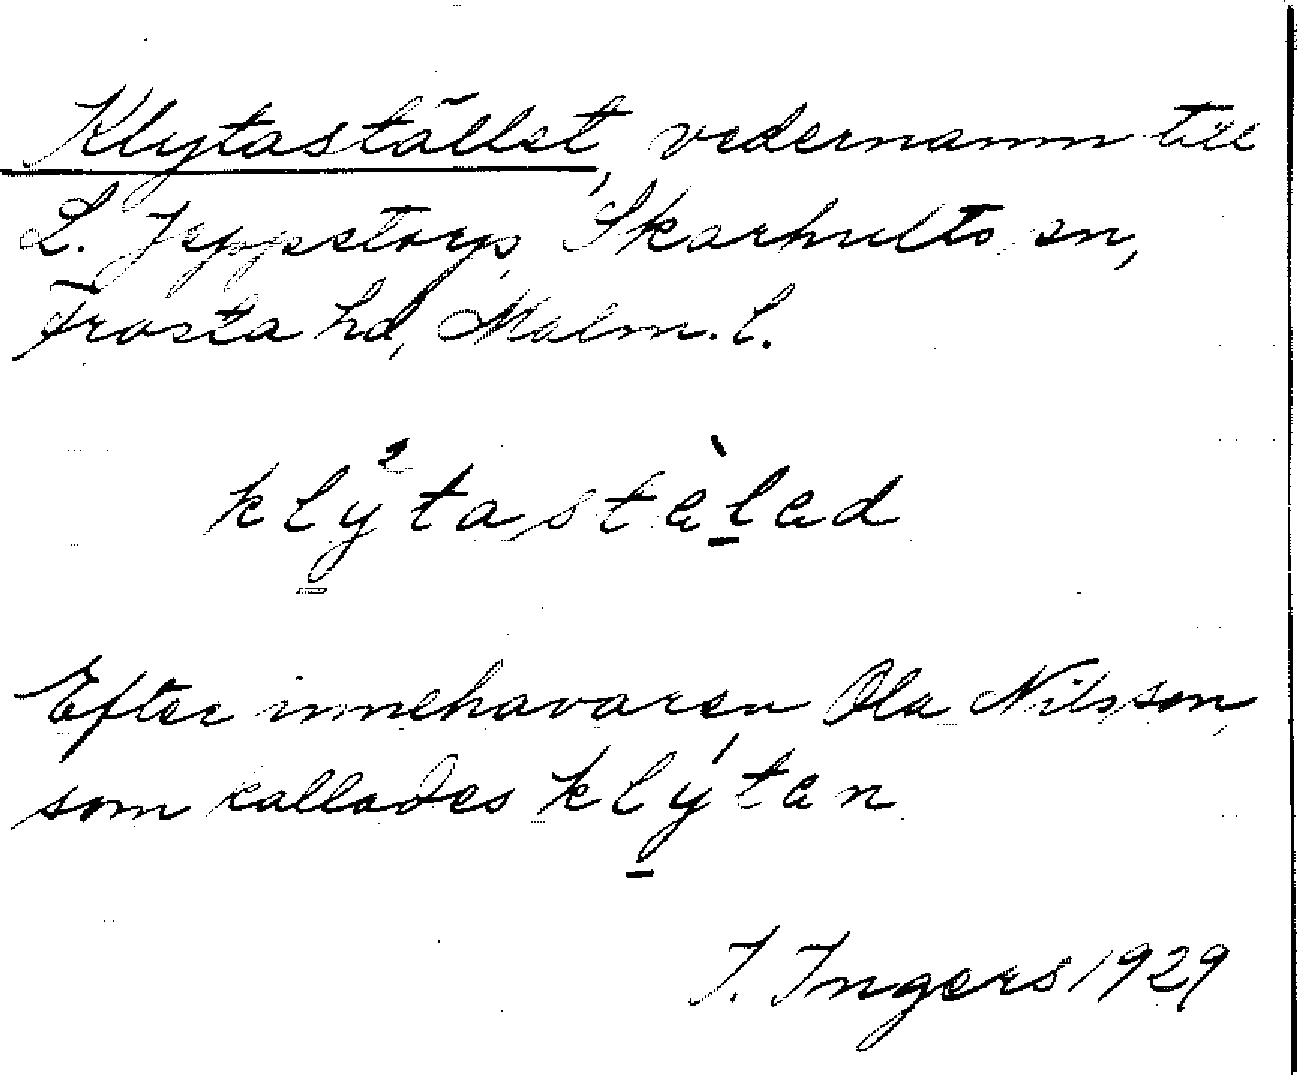 Klytastället, vedernamn till
L. Jeppstorp, Skarhults sn,
Frosta hd, Malm. l.
klýtastàlad
Efter innehavaren Ola Nilsson,
som kallades klýtan
I. Ingers 1929